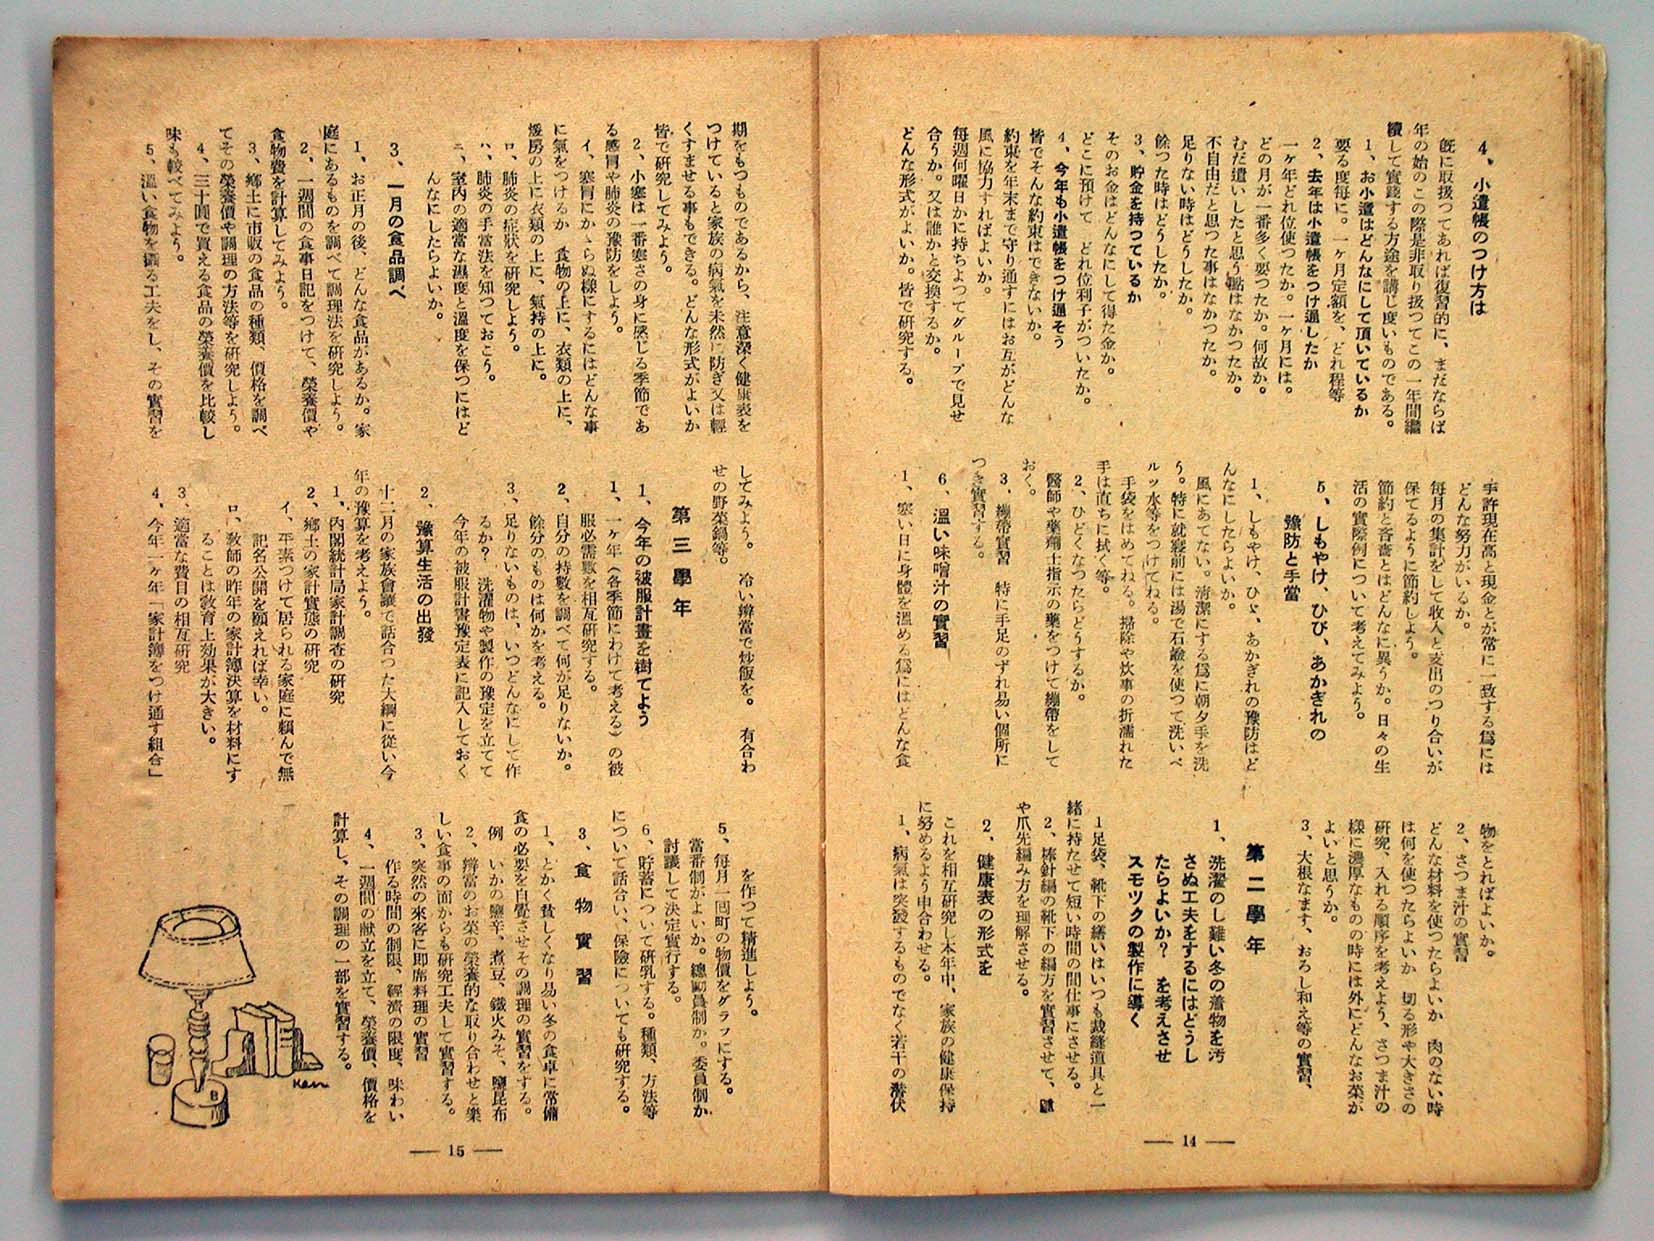 4、小遣帳のつけ方は
既に取扱つてあれば復習的に、まだならば
年の始のこの際是非取り扱つてこの一年間繼
續して實踐する方途を講じ度いものである。
1、お小遣はどんなにして頂いているか
要る度毎に。一ヶ月定額を、どれ程等
2、去年は小遣帳をつけ通したか
一ヶ年どれ位使つたか。一ヶ月には。
どの月が一番多く要つたか。何故か。
むだ遣いしたと思う點はなかつたか。
不自由だと思つた事はなかつたか。
足りない時はどうしたか。
餘つた時はどうしたか。
3、貯金を持つているか
そのお金はどんなにして得た金か。
どこに預けて どれ位利子がついたか。
4、今年も小遣帳をつけ通そう
皆でそんな約束はできないか。
約束を年末まで守り通すにはお互がどんな
風に協力すればよいか。
毎週何曜日かに持ちよつてグループで見せ
合うか。又は誰かと交換するか。
どんな形式がよいか。皆で研究する。
手許現在高と現金とが常に一致する爲には
どんな努力がいるか。
毎月の集計をして收入と支出のつり合いが
保てるように節約しよう。
節約と吝嗇とはどんなに異うか。日々の生
活の實際例について考えてみよう。
5、しもやけ、ひび、あかぎれの
豫防と手當
1、しもやけ、ひゞ、あかぎれの豫防はど
んなにしたらよいか。
風にあてない。清潔にする爲に朝夕手を洗
う。特に就寝前には湯で石鹼を使つて洗いベ
ルツ水等をつけてねる。
手袋をはめてねる。掃除や炊事の折濡れた
手は直ちに拭く等。
2、ひどくなつたらどうするか。
醫師や藥劑士指示の藥をつけて繃帶をして
おく。
3、繃帶實習 特に手足のずれ易い個所に
つき實習する。
6、溫い味噌汁の實習
1、寒い日に身體を溫める爲にはどんな食
物をとればよいか。
2、さつま汁の實習
どんな材料を使つたらよいか 肉のない時
は何を使つたらよいか 切る形や大きさの
研究、入れる順序を考えよう、さつま汁の
樣に濃厚なものの時には外にどんなお菜が
よいと思うか。
3、大根なます、おろし和え等の實習、
第二學年
1、洗濯のし難い冬の着物を汚
さぬ工夫をするにはどうし
たらよいか? を考えさせ
スモツクの製作に導く
1足袋、靴下の繕いはいつも裁縫道具と一
緒に持たせて短い時間の間仕事にさせる。
2、棒針編の靴下の編方を實習させて、踵
や爪先編み方を理解させる。
2、健康表の形式を
これを相互研究し本年中、家族の健康保持
に努めるよう申合わせる。
1、病氣は突發するものでなく若干の潜伏
— 14 —
期をもつものであるから、注意深く健康表を
つけていると家族の病氣を未然に防ぎ又は輕
くすませる事もできる。どんな形式がよいか
皆で研究してみよう。
2、小寒は一番寒さの身に感じる季節であ
る感冒や肺炎の豫防をしよう。
イ、寒冒にかゝらぬ樣にするにはどんな事
に氣をつけるか 食物の上に、衣類の上に、
煖房の上に衣類の上に、氣持の上に。
ロ、肺炎の症狀を研究しよう。
ハ、肺炎の手當法を知つておこう。
ニ、室内の適當な濕度と溫度を保つにはど
んなにしたらよいか。
3、一月の食品調べ
1、お正月の後、どんな食品があるか。家
庭にあるものを調べて調理法を研究しよう。
2、一週間の食事日記をつけて、榮養價や
食物費を計算してみよう。
3、鄉土に市販の食品の種類、價格を調べ
てその榮養價や調理の方法等を研究しよう。
4、三十圓で買える食品の榮養價を比較し
味も較べてみよう。
5、溫い食物を攝る工夫をし、その實習を
してみよう。 冷い辨當で炒飯を。 有合わ
せの野菜鍋等。
第三學年
1、今年の被服計畫を樹てよう
1、一ヶ年(各季節にわけて考える)の被
服必需數を相互研究する。
2、自分の持數を調べて何が足りないか。
餘分のものは何かを考える。
3、足りないものは、いつどんなにして作
るか? 洗濯物や製作の豫定を立てて
今年の被服計畫豫定表に記入しておく
2、豫算生活の出發
十二月の家族會議で話合つた大綱に從い今
年の豫算を考えよう。
1、内閣統計局家計調査の研究
2、鄉土の家計實態の研究
イ、平素つけて居られる家庭に賴んで無
記名公開を願えれば幸い。
ロ、敎師の昨年の家計簿決算を材料にす
ることは敎育上効果が大きい。
3、適當な費目の相互研究
4、今年一ヶ年「家計簿をつけ通す組合」
を作つて精進しよう。
5、毎月一囘町の物價をグラフにする。
當番制がよいか。總動員制か。委員制か
討議して決定實行する。
6、貯蓄について研乳する。種類、方法等
について話合い、保險についても研究する。
3、食物實習
1、とかく貧しくなり易い冬の食卓に常備
食の必要を自覺させその調理の實習をする。
例 いかの鹽辛、煮豆、鐵火みそ、鹽昆布
2、辨當のお菜の榮養的な取り合わせと樂
しい食事の面からも研究工夫して實習する。
3、突然の來客に即席料理の實習
作る時間の制限、經濟の限度、味わい
4、一週間の獻立を立て、榮養價、價格を
計算し、その調理の一部を實習する。
Ken
— 15 —